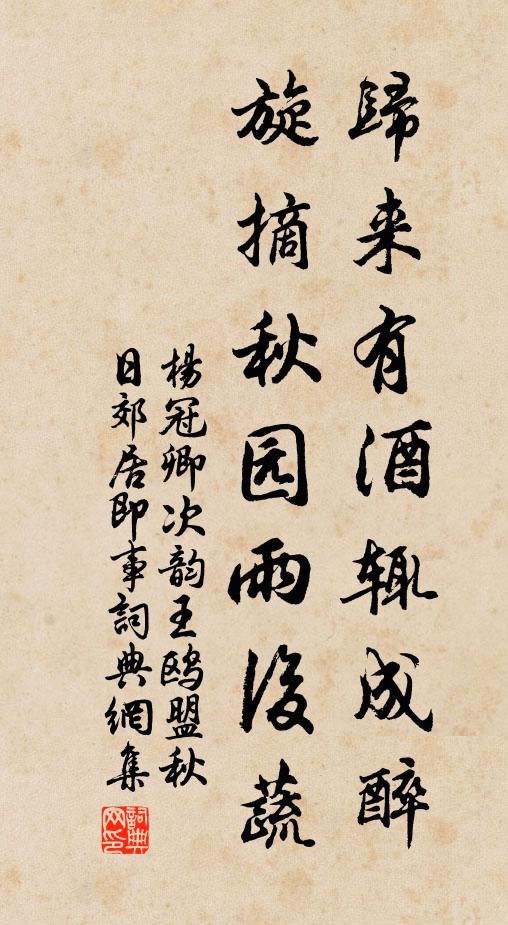 歸来有酒辄成醉
旋摘秋园雨後蔬
楊冠卿次韵王鸥盟秋
日郊居即事詞典網集
詞典
网印